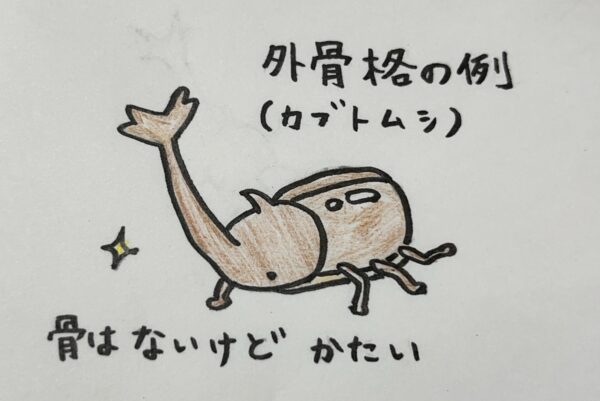 外骨格の例
(カブトムシ)
骨はないけど かたい